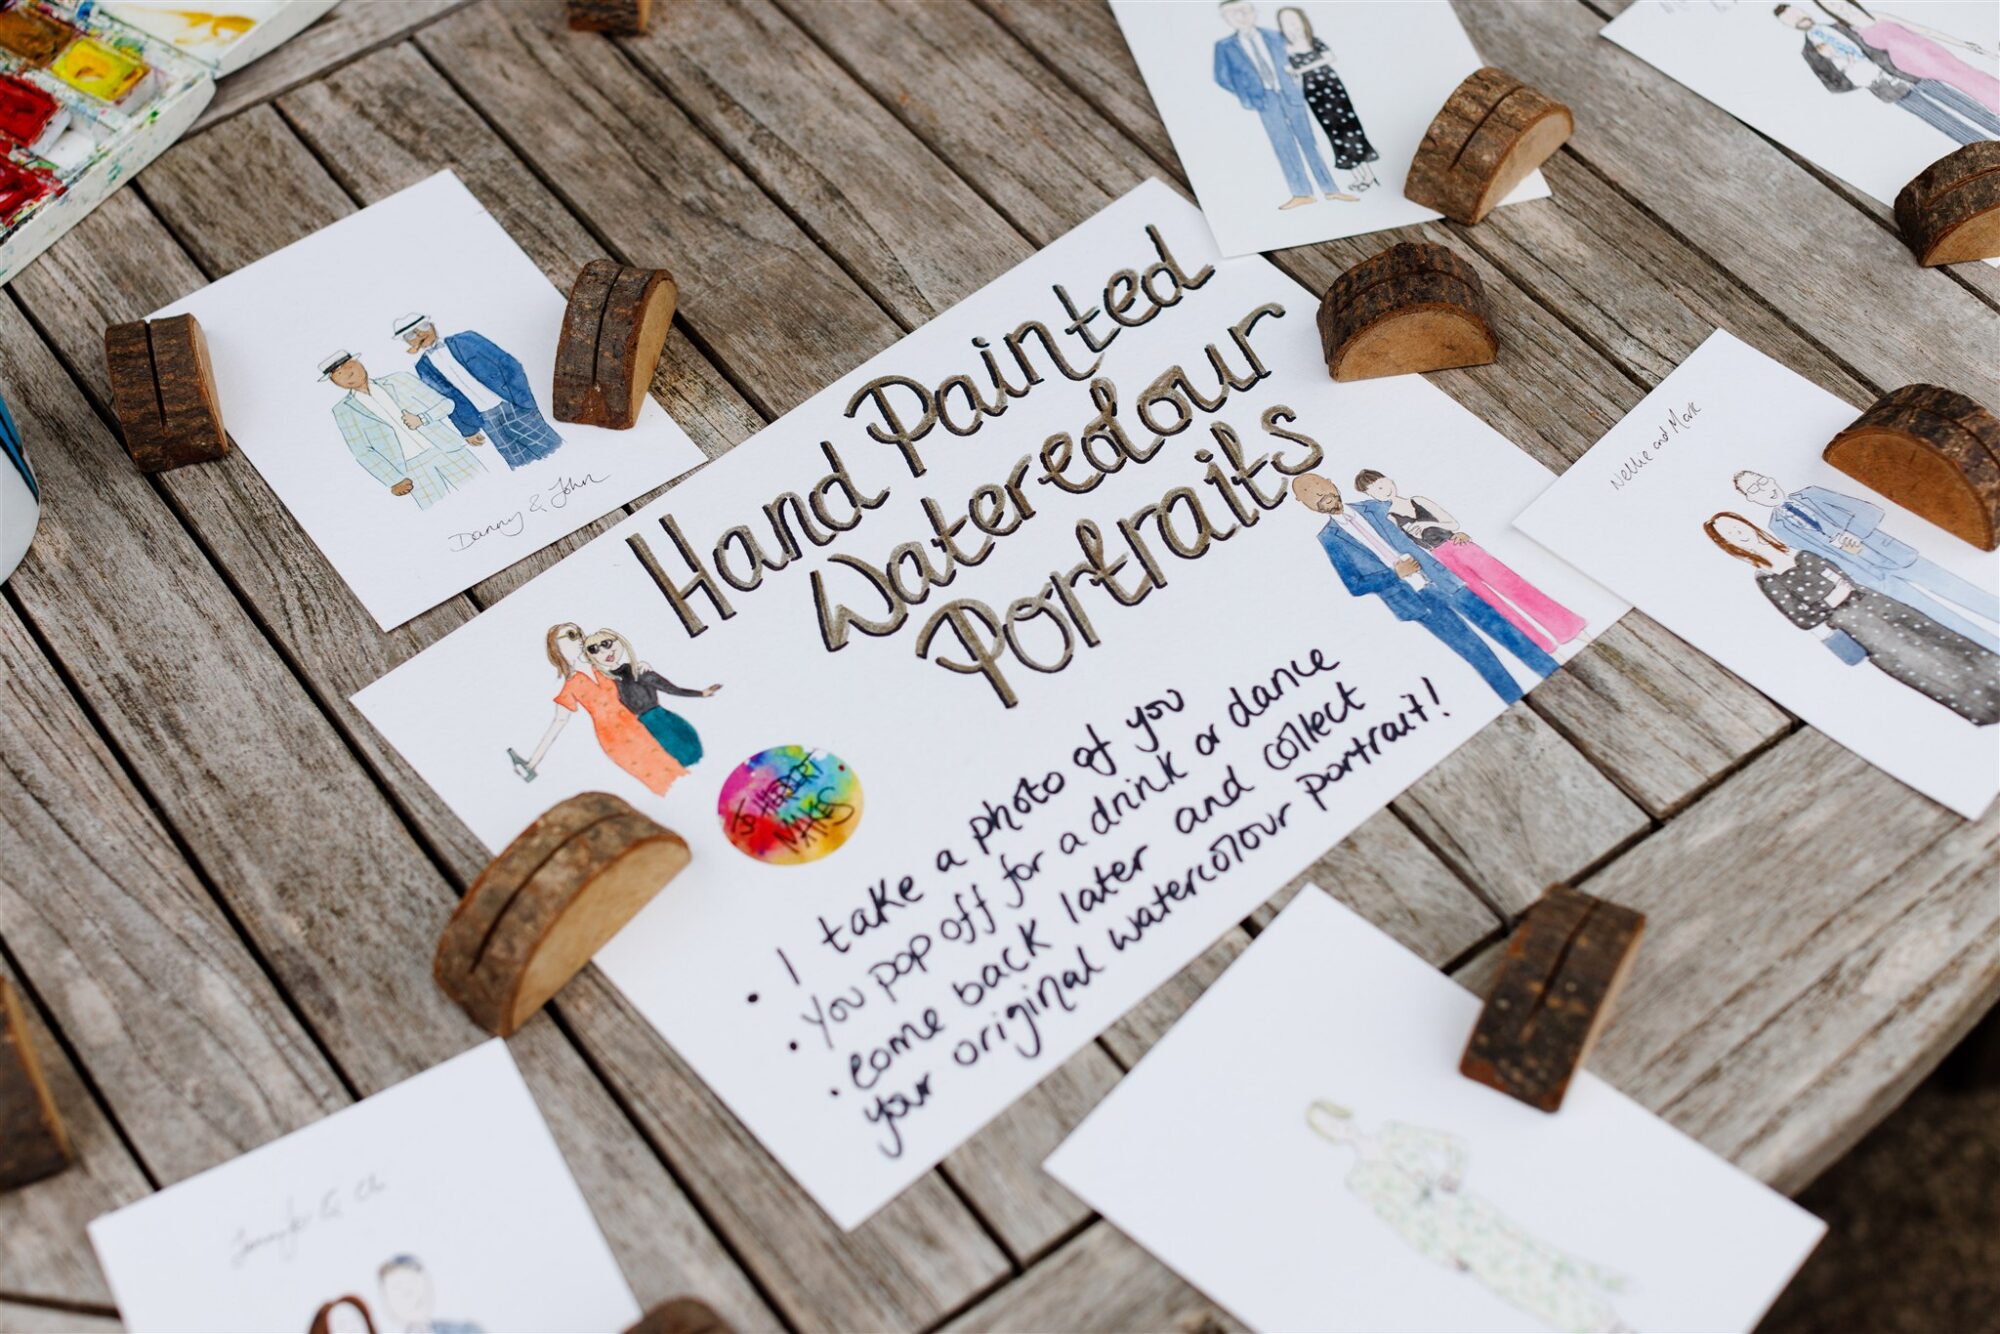 Hand Painted
Watercolour
Portraits
• I take a photo of you
• You pop off for a drink or dance
• Come back later and collect
your original watercolour portrait!
JO HERBERT
MAKES
Danny & John
Nellie and Mark
Jennifer &